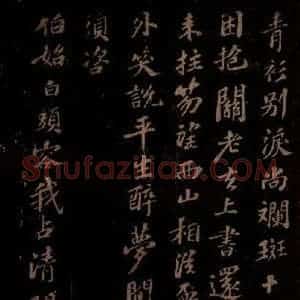 青衫别淚尚斕斑十
困抱關老去上書還
来拄笏望西山相從
外笑說平生醉夢間
須咨
伯始白頭容我占清
Shufazidian.COM